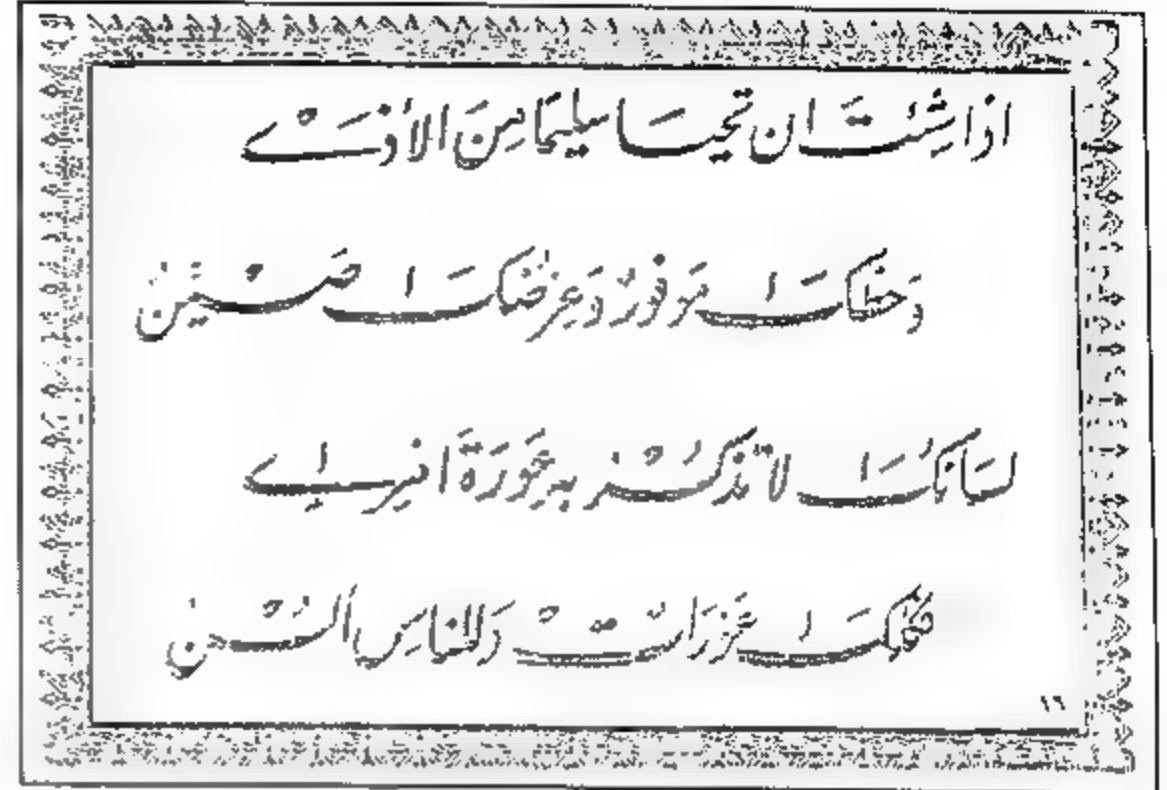 اذا شِئتَ ان تحيَا سليمًا مِنَ الأذَىْ
وَحظُكَ مَوفورٌ وَعِرضُكَ صَيْنُ
لسَانُكَ لا تَذكُرْ بهِ عَورَةَ امرِئ
فكُلكَ عَورَاتْ وَللناسِ ألسُنْ
١٦